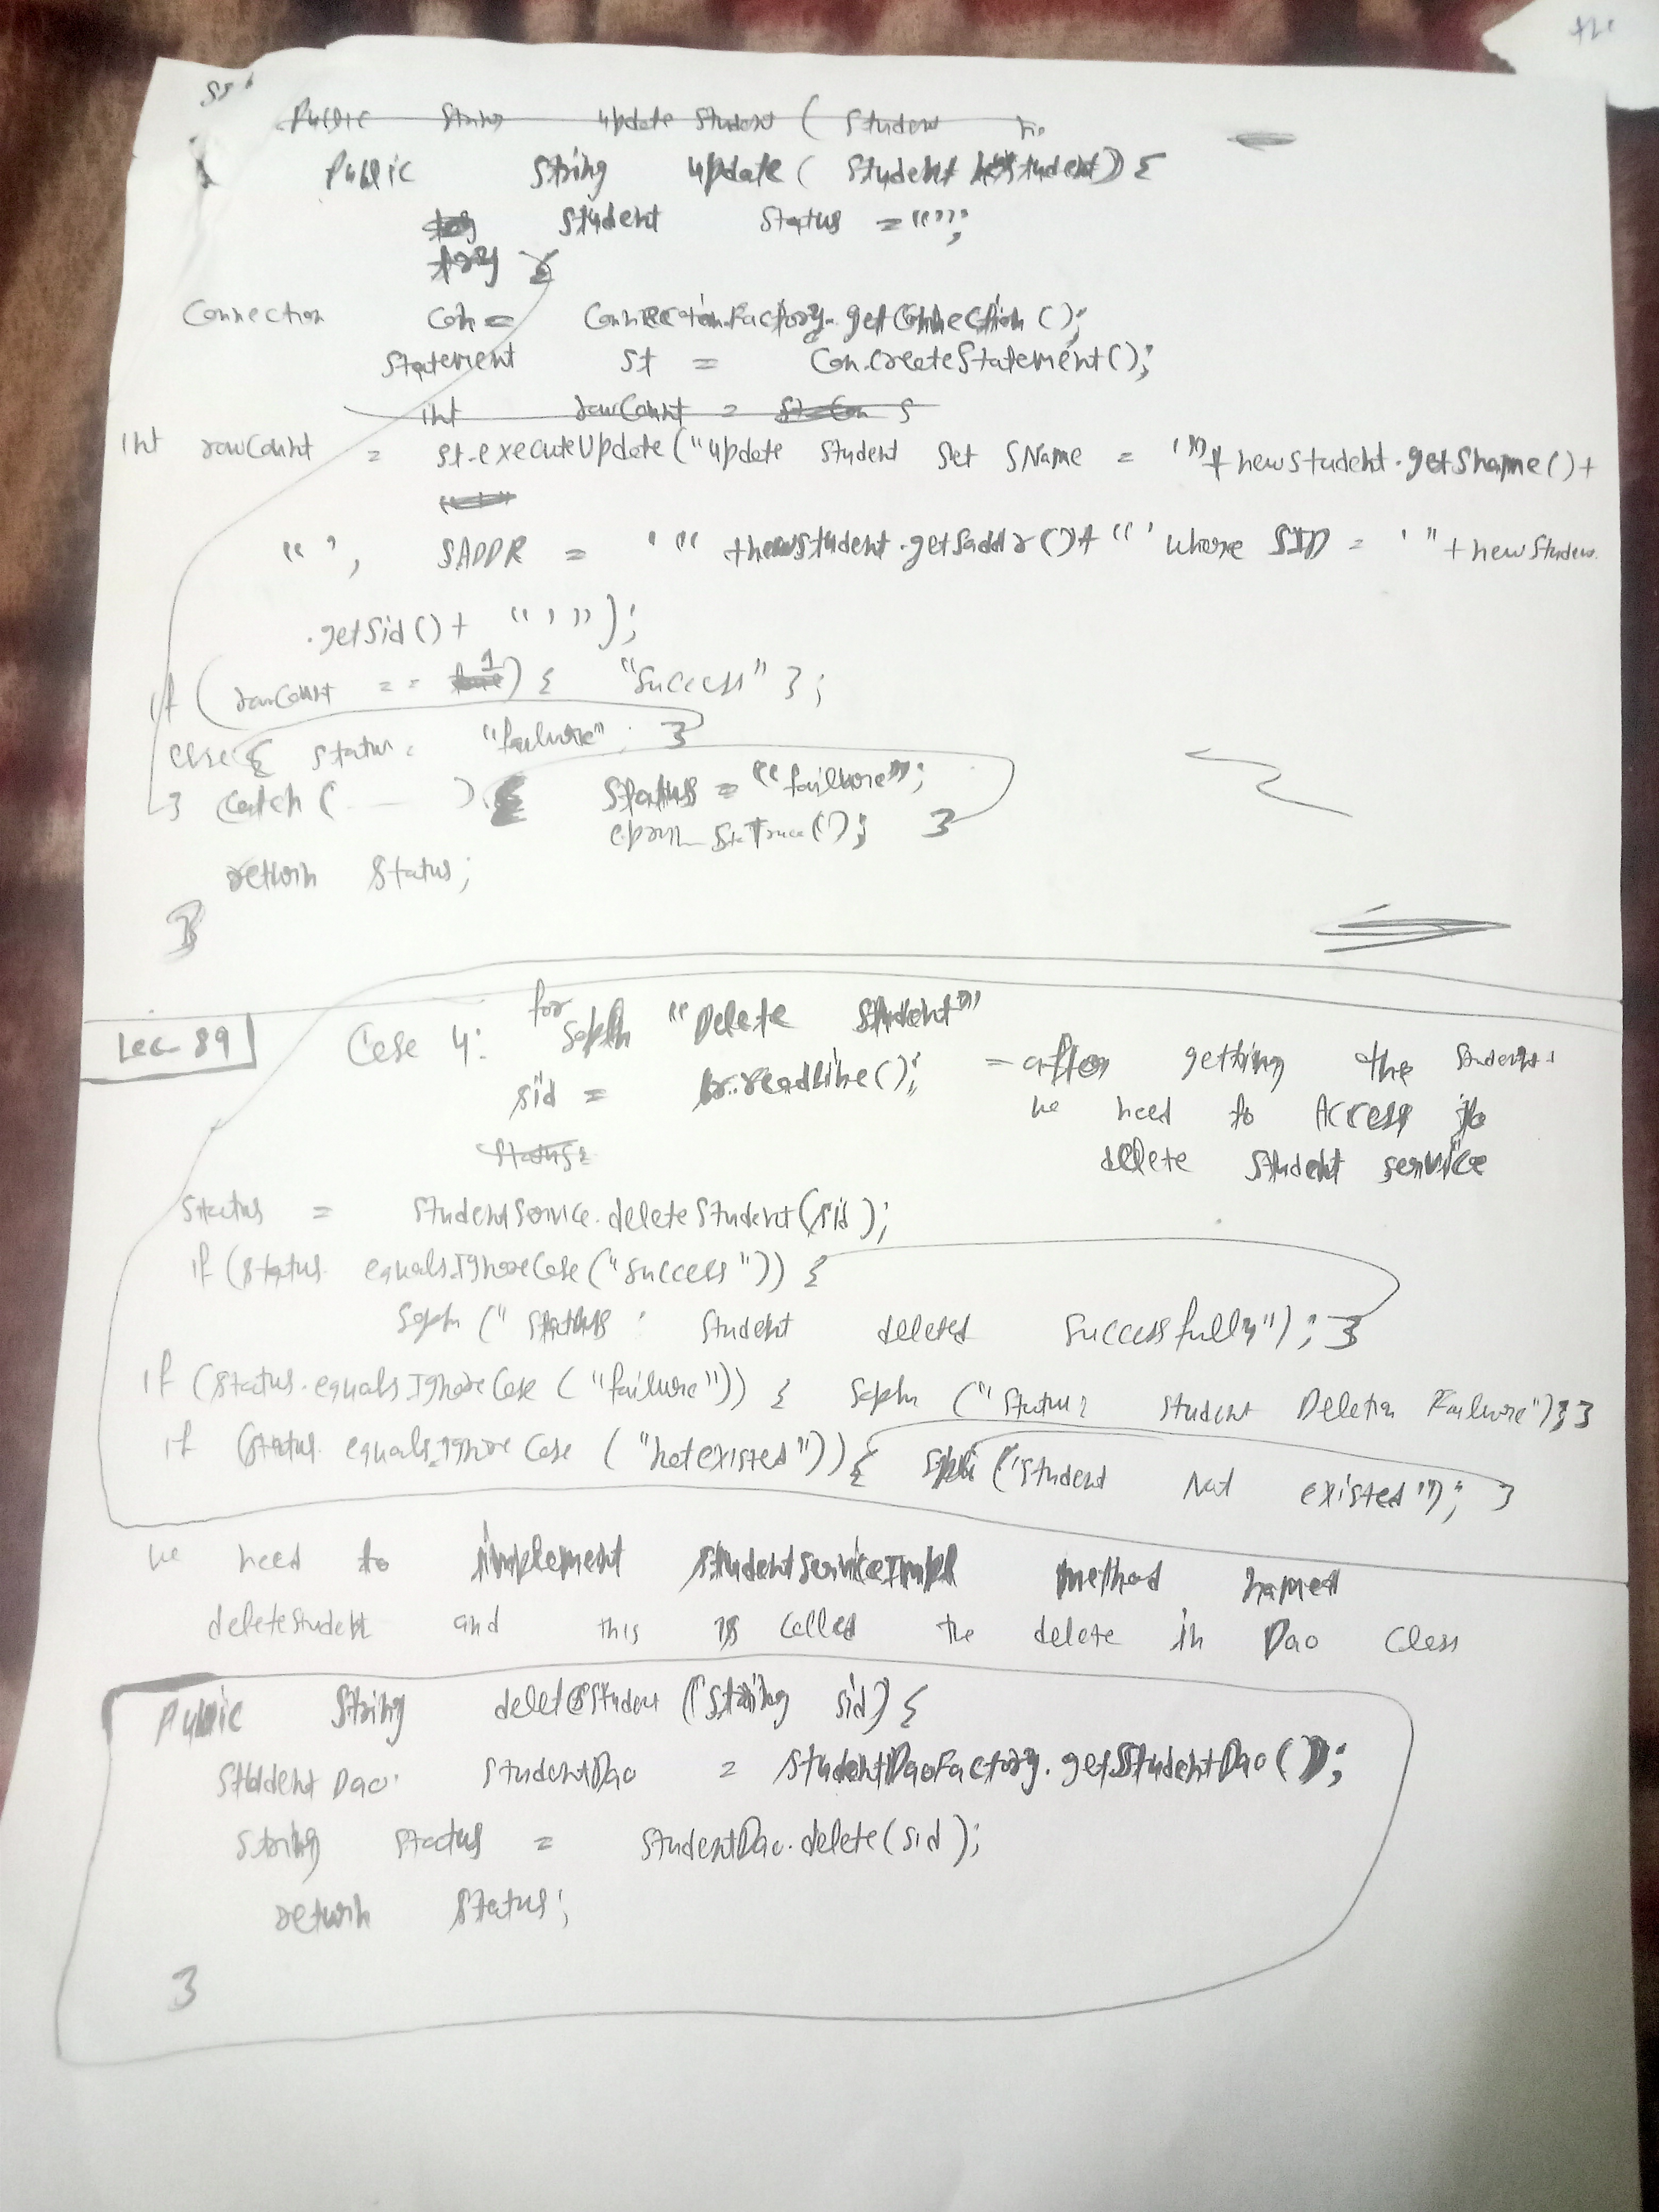 public String update Student ( Student
Public String update( Student newStudent) {
Student Status = "";
try {
Connection Con = ConnectionFactory.getConnection ();
Statement St = Con.createStatement();
int rowCount =
int rowCount = st.executeUpdate("update student set SName = '"+newStudent.getSname()+
"', SADDR = '"+newStudent.getSaddr()+"' where SID = '"+newStuden
.getSid()+ "'");
if (rowCount == 1) { "Success" };
else { status = "failure"; }
} catch ( ..... ) { Status = "failure";
}
return Status;
}
Lec 89
Case 4: for Sopln "Delete Student"
sid = br.readLine(); = after getting the
we need to Access to
delete Student service
Status =
Status = StudentService.deleteStudent(sid);
if (status. equalsIgnoreCase("success")) {
Sopln (" Status : Student deleted Successfully"); }
if (status.equalsIgnoreCase ("failure")) { Sopln ("Status: Student Deletion Failure")}}
if (status. equalsIgnoreCase ("notexisted")) { Sopln ("Student Not existed"); }
we need to implement StudentServiceImpl method named
deletestudent and this is called the delete in Dao Class
Public String deleteStudent (String sid) {
StudentDao studentDao = StudentDaoFactory.getStudentDao ();
String status = StudentDao.delete(sid);
return Status;
}